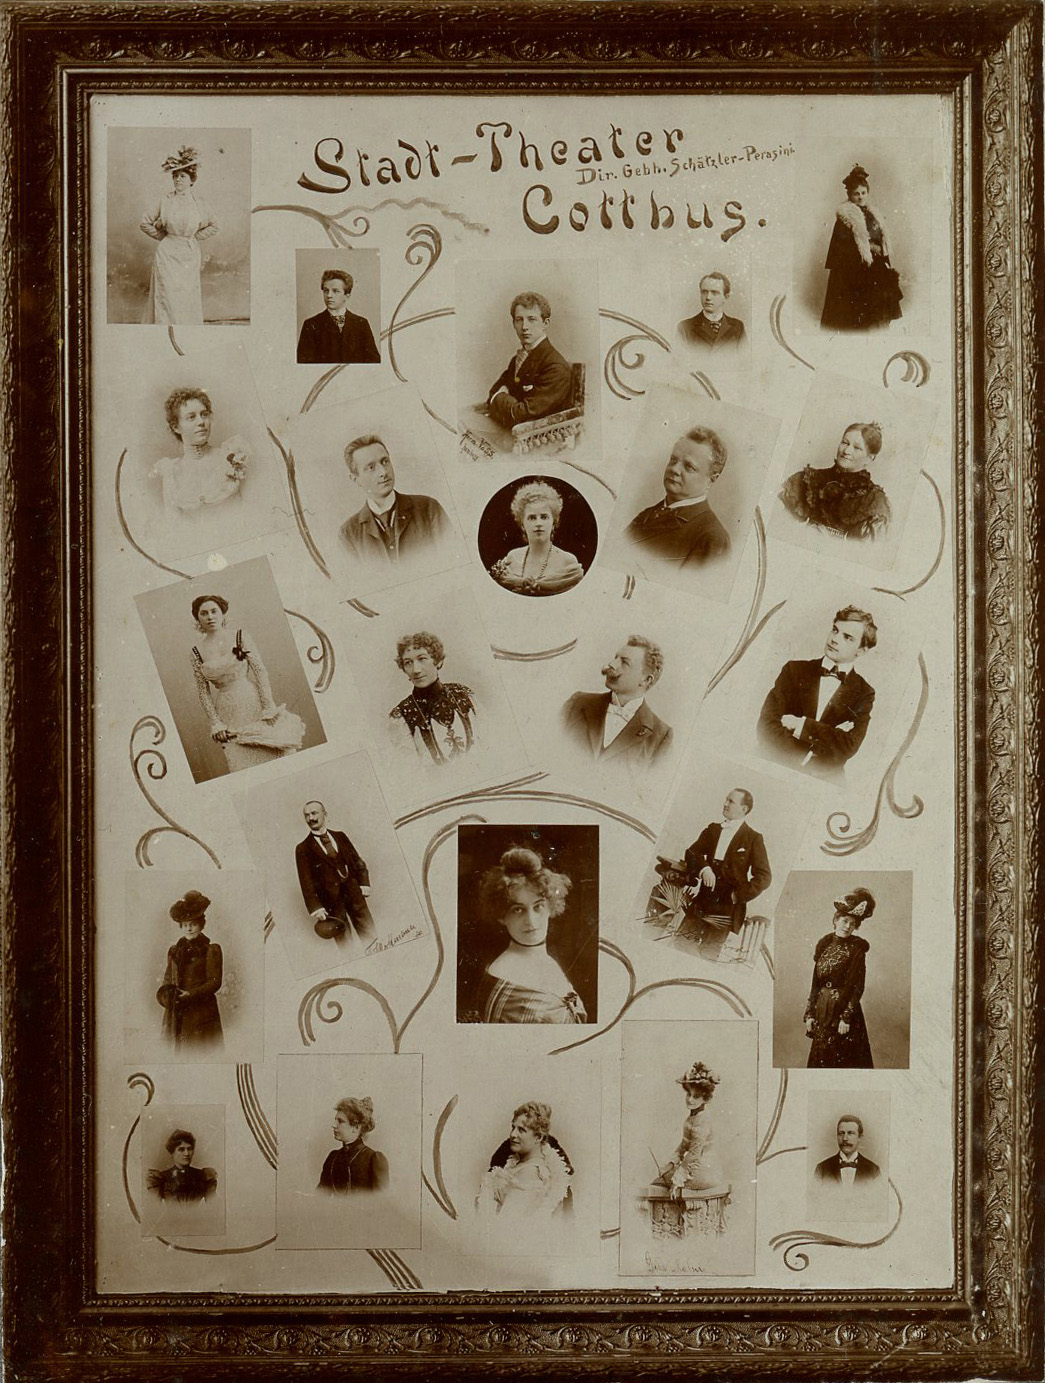 Stadt-Theater
Dir. Gebh. Schätzler-Perasini
Cottbus.